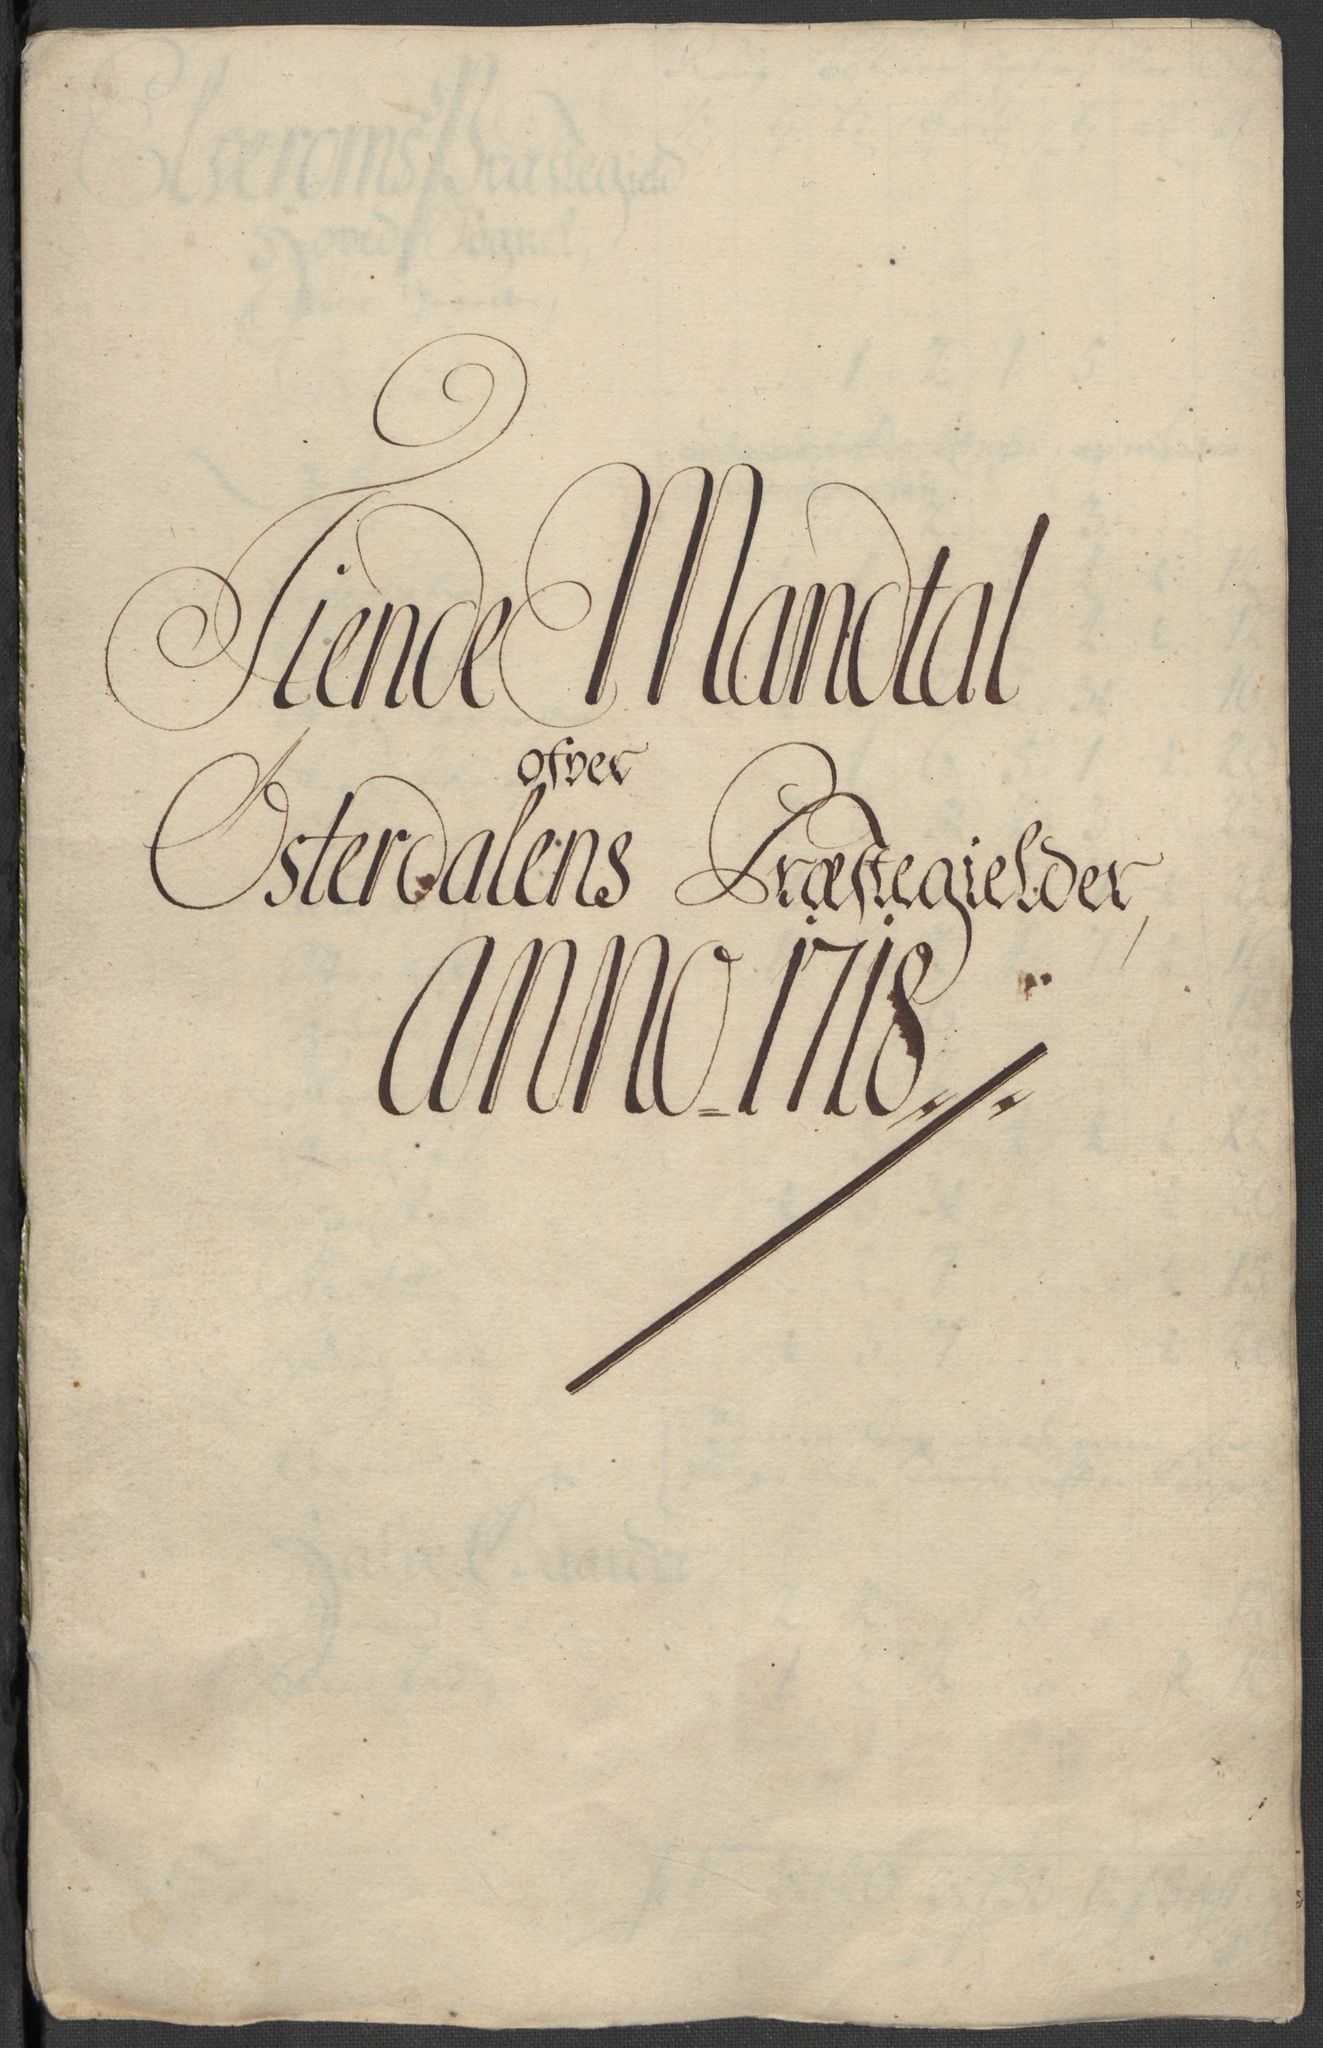 Tiende Mandtal
ofver
Østerdalens Præstegielder,
Anno 1718